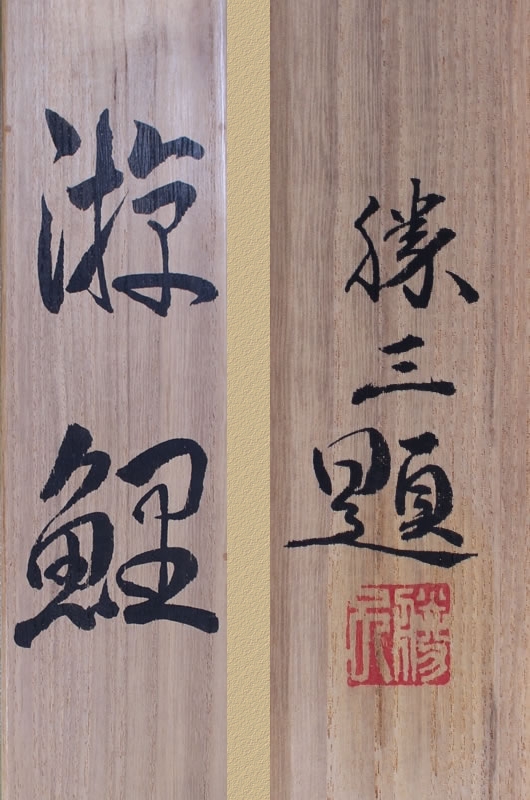 游鯉
勝三題